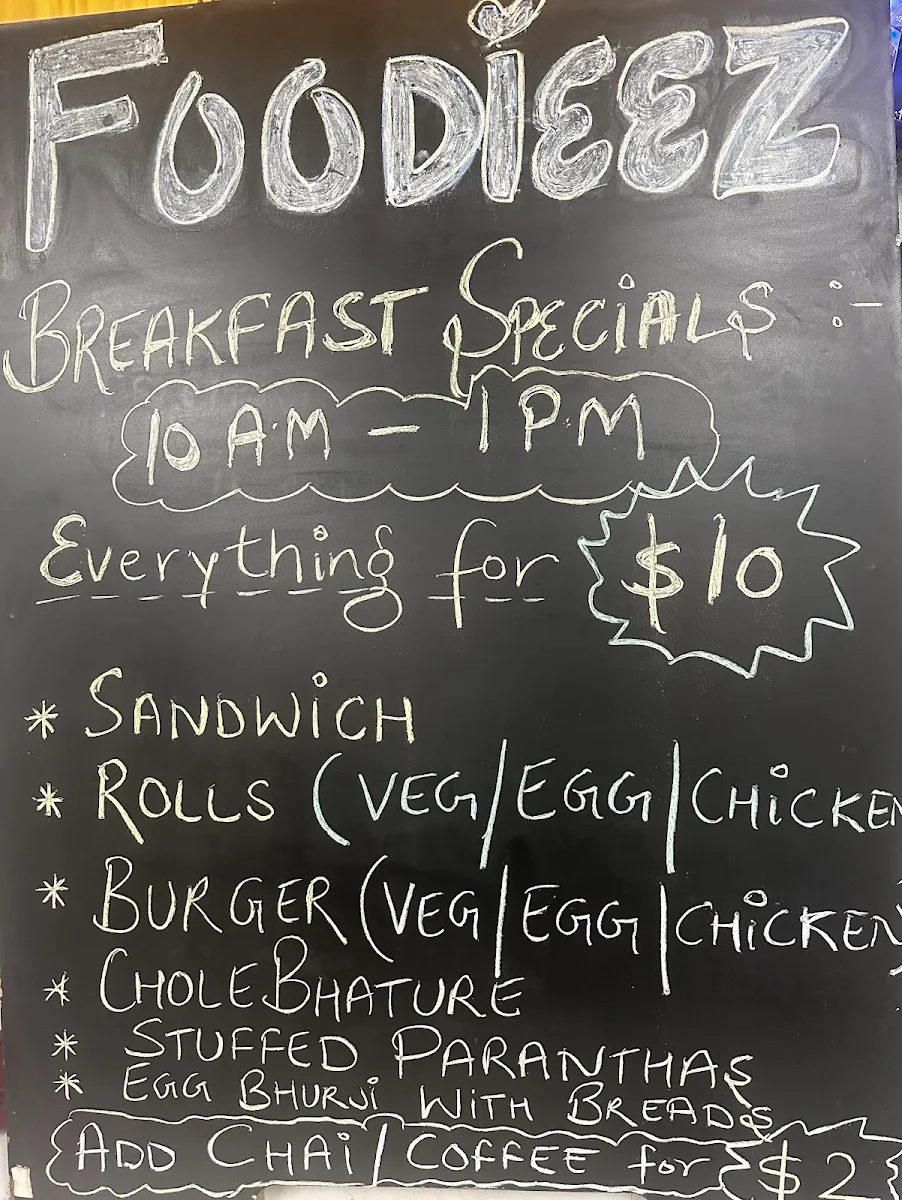 FOODiEEZ
BREAKFAST SPECiALS :-
10 A.M - 1 P.M
Everything for $10
* SANDWiCH
* ROLLS (VEG/EGG/CHiCKEN
* BURGER (VEG/EGG/CHiCKEN)
* CHOLE BHATURE
* STUFFED PARANTHAS
* EGG BHURJi WiTH BREADS
ADD CHAi/COFFEE for $2